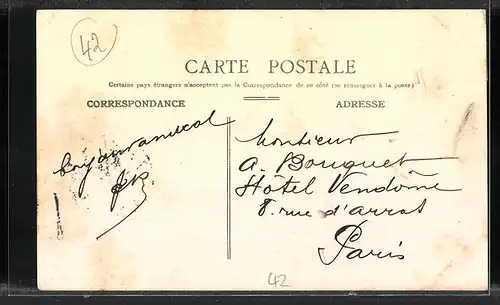 42
CARTE POSTALE
Certains pays étrangers n'acceptent pas la Correspondance de ce côté (se renseigner à la poste)
CORRESPONDANCE
ADRESSE
Monsieur
A. Bouquet
Hotel Vendôme
8. rue d'arras
Paris
42